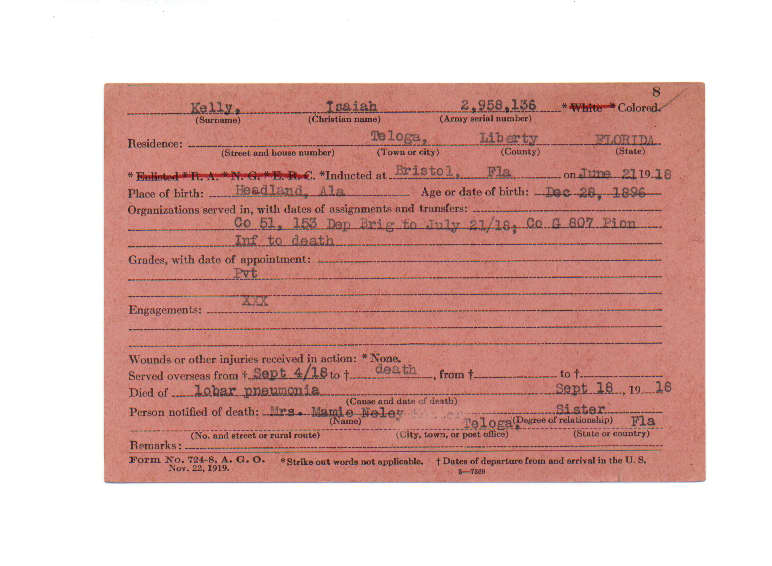 8
Kelly, Isaiah 2,958,136 * White * Colored.
(Surname) (Christian name) (Army serial number)
Residence: Teloga, Liberty FLORIDA
(Street and house number) (Town or city) (County) (State)
* Enlisted * R. A. * N. G. * E. R. C. *Inducted at Bristol, Fla on June 21 19 18
Place of birth: Headland, Ala Age or date of birth: Dec 28, 1896
Organizations served in, with dates of assignments and transfers:
Co 51, 153 Dep Brig to July 21/18; Co G 807 Pion
Inf to death
Grades, with date of appointment:
Pvt
XXX
Engagements:
Wounds or other injuries received in action: * None.
Served overseas from † Sept 4/18 to † death, from † to †
Died of lobar pneumonia Sept 18, 19 18
(Cause and date of death)
Person notified of death: Mrs. Mamie Neley Sister
(Name) (Degree of relationship)
Teloga, Fla
(No. and street or rural route) (City, town, or post office) (State or country)
Remarks:
Form No. 724-8, A. G. O. *Strike out words not applicable. † Dates of departure from and arrival in the U. S.
Nov. 22, 1919.